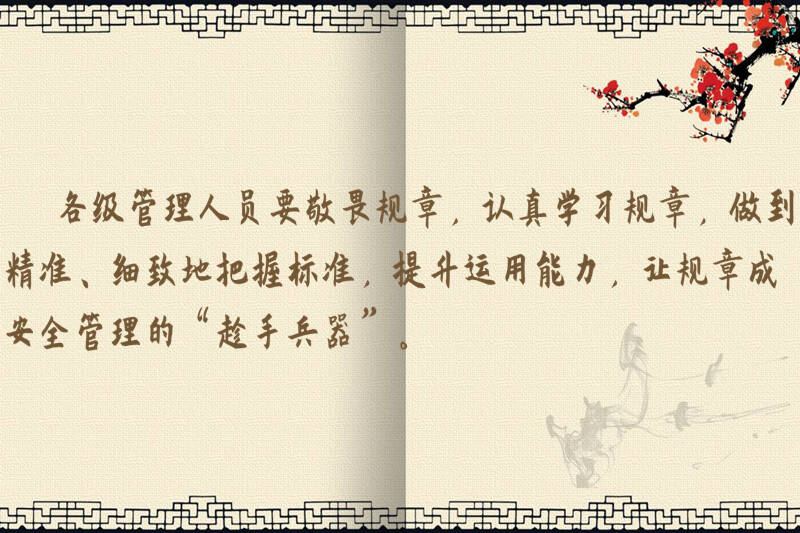 各级管理人员要敬畏规章，认真学习规章，做到
精准、细致地把握标准，提升运用能力，让规章成
安全管理的“趁手兵器”。